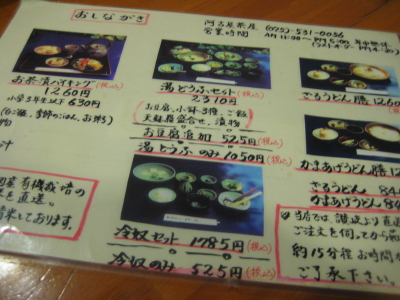 おしながき
阿古屋茶屋 (075)-531-0036
営業時間 AM 11:00~PM 5:00 年中無休
お茶漬バイキング(税込)
1260円
小学3年生以下 630円
湯とうふセット(税込)
2310円
お豆腐、小鉢3種、ご飯
天麩羅盛合せ、漬物
お豆腐追加 525円
湯とうふのみ1050円(税込)
冷奴セット 1785円(税込)
冷奴のみ 525円(税込)
ざるうどん膳 1260
かまあげうどん膳 12
ざるうどん 84
かまあげうどん 84
当店では、讃岐より直
ご注文を伺ってから
約15分程お時間を
ご了承下さい。
汁
有機栽培の
を直送。
精米しております。